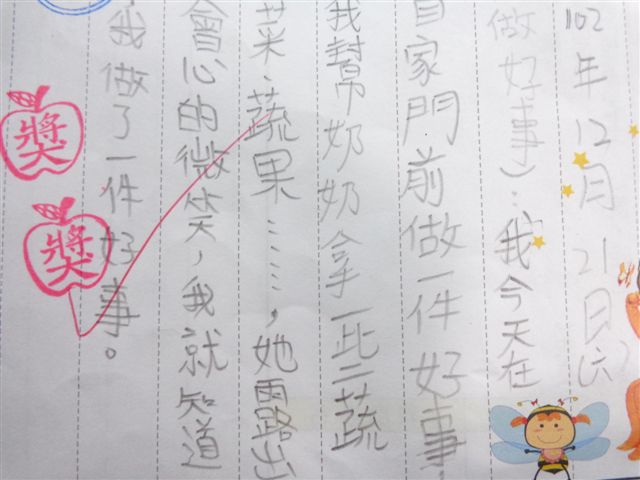 102年12月21日(六)
做好事)：我今天在
自家門前做一件好事
我幫奶奶拿一些蔬
菜、蔬果……，她露出
會心的微笑，我就知道
我做了一件好事。
獎
獎